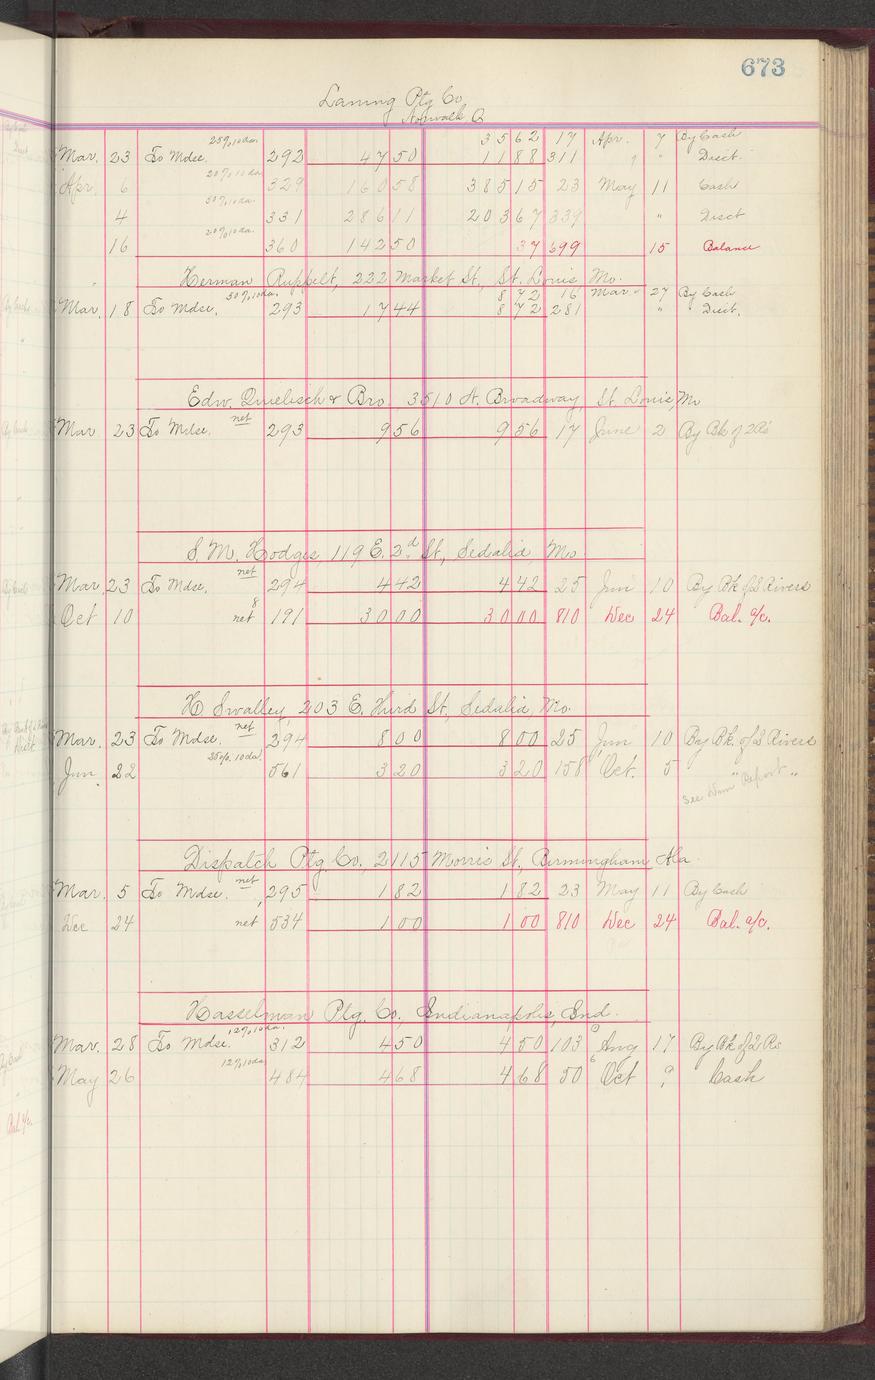 673
Laning Ptg Co
Norwalk O
25% 10 da. 3562 17 Apr. 7 By Cash
Mar. 23 To Mdse. 292 4750 1188 311 " Disct.
Apr. 6 20% 10 da 329 16058 38515 23 May 11 Cash
4 50% 10 da. 331 28611 20367 339 " Disct
16 20% 10 da. 360 14250 37 699 15 Balance
Herman Ruppelt, 222 Market St, St. Louis Mo.
50% 10 da. 872 16 Mar 27 By Cash
Mar. 18 To Mdse. 293 1744 872 281 " " Disct.
Edw. & Bro. 3510 N. Broadway, St Louis, Mo
Mar 23 To Mdse. net 293 956 956 17 June 2 By Bk of 2 Rs
S. M. Hodges, 119 E. 2d St, Sedalia, Mo
Mar 23 To Mdse. net 294 442 442 25 Jun 10 By Bk of 2 Rivers
Oct 10 net 8 191 3000 3000 810 Dec 24 Bal. a/c.
H. Swalley, 203 E. Third St, Sedalia, Mo.
Mar. 23 To Mdse. net 294 800 800 25 Jun 10 By Bk. of 2 Rivers
Jun 22 25% 10 da. 561 320 320 158 Oct. 5 " "
See Report
Dispatch Ptg. Co, 2115 Morris St, Birmingham Ala.
Mar. 5 To Mdse. net 295 182 182 23 May 11 By Cash
Dec 24 net 534 100 100 810 Dec 24 Bal. a/c.
Hasselman Ptg. Co., Indianapolis, Ind.
Mar. 28 To Mdse. 12% 10 da. 312 450 450 103 Aug 17 By Bk of 2 Rs
May 26 12% 10 da 484 468 468 50 Oct 9 Cash